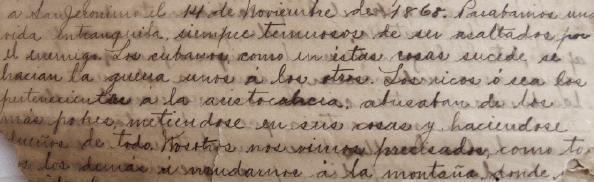 a San Jeronimo el 14 de Noviembre de 1868. Pasabamos una
vida intranquila, siempre temerosos de ser asaltados por
el enemigo. Los cubanos, como en estas cosas sucede se
hacian la guerra unos a los otros. Los ricos ó sea los
pertenecientes á la aristocracia, abusaban de los
más pobres, metiendose en sus casas y haciendose
dueños de todo. Nosotros nos vimos precisados, como to-
dos los demás á mudarnos á la montaña, donde